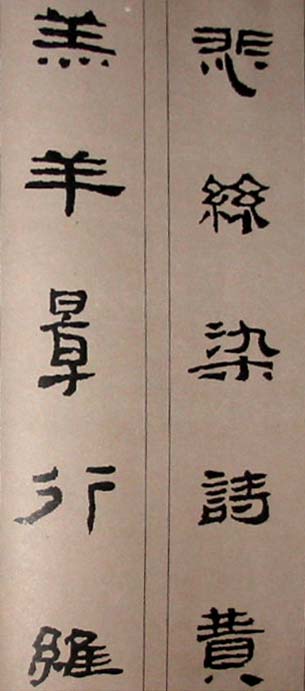 悲絲染詩賛
羔羊景行維